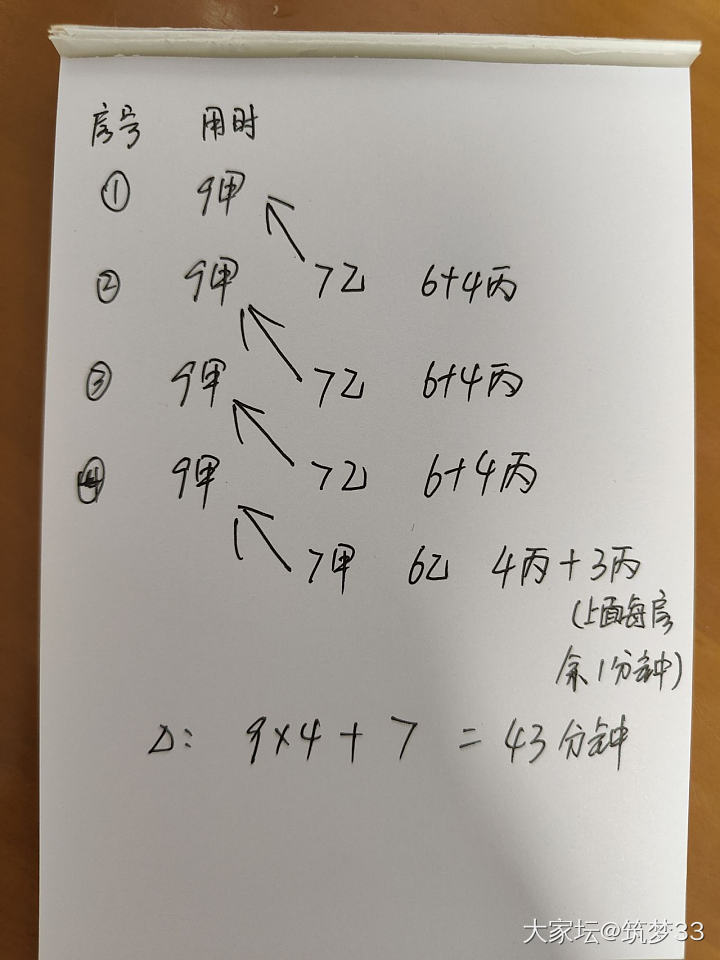 序号 用时
① 9甲
② 9甲 7乙 6+4丙
③ 9甲 7乙 6+4丙
④ 9甲 7乙 6+4丙
7甲 6乙 4丙+3丙
(上面每房
余1分钟)
9×4+7=43分钟
大家坛@筑梦33